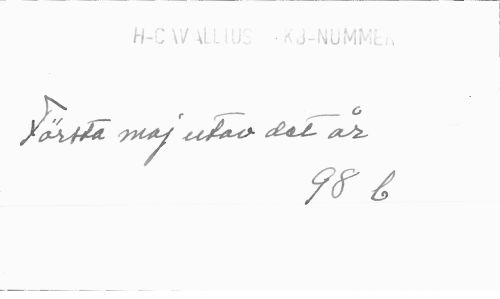 H-CAVALLIUS KB-NUMMER
Första maj utav det år
98 b